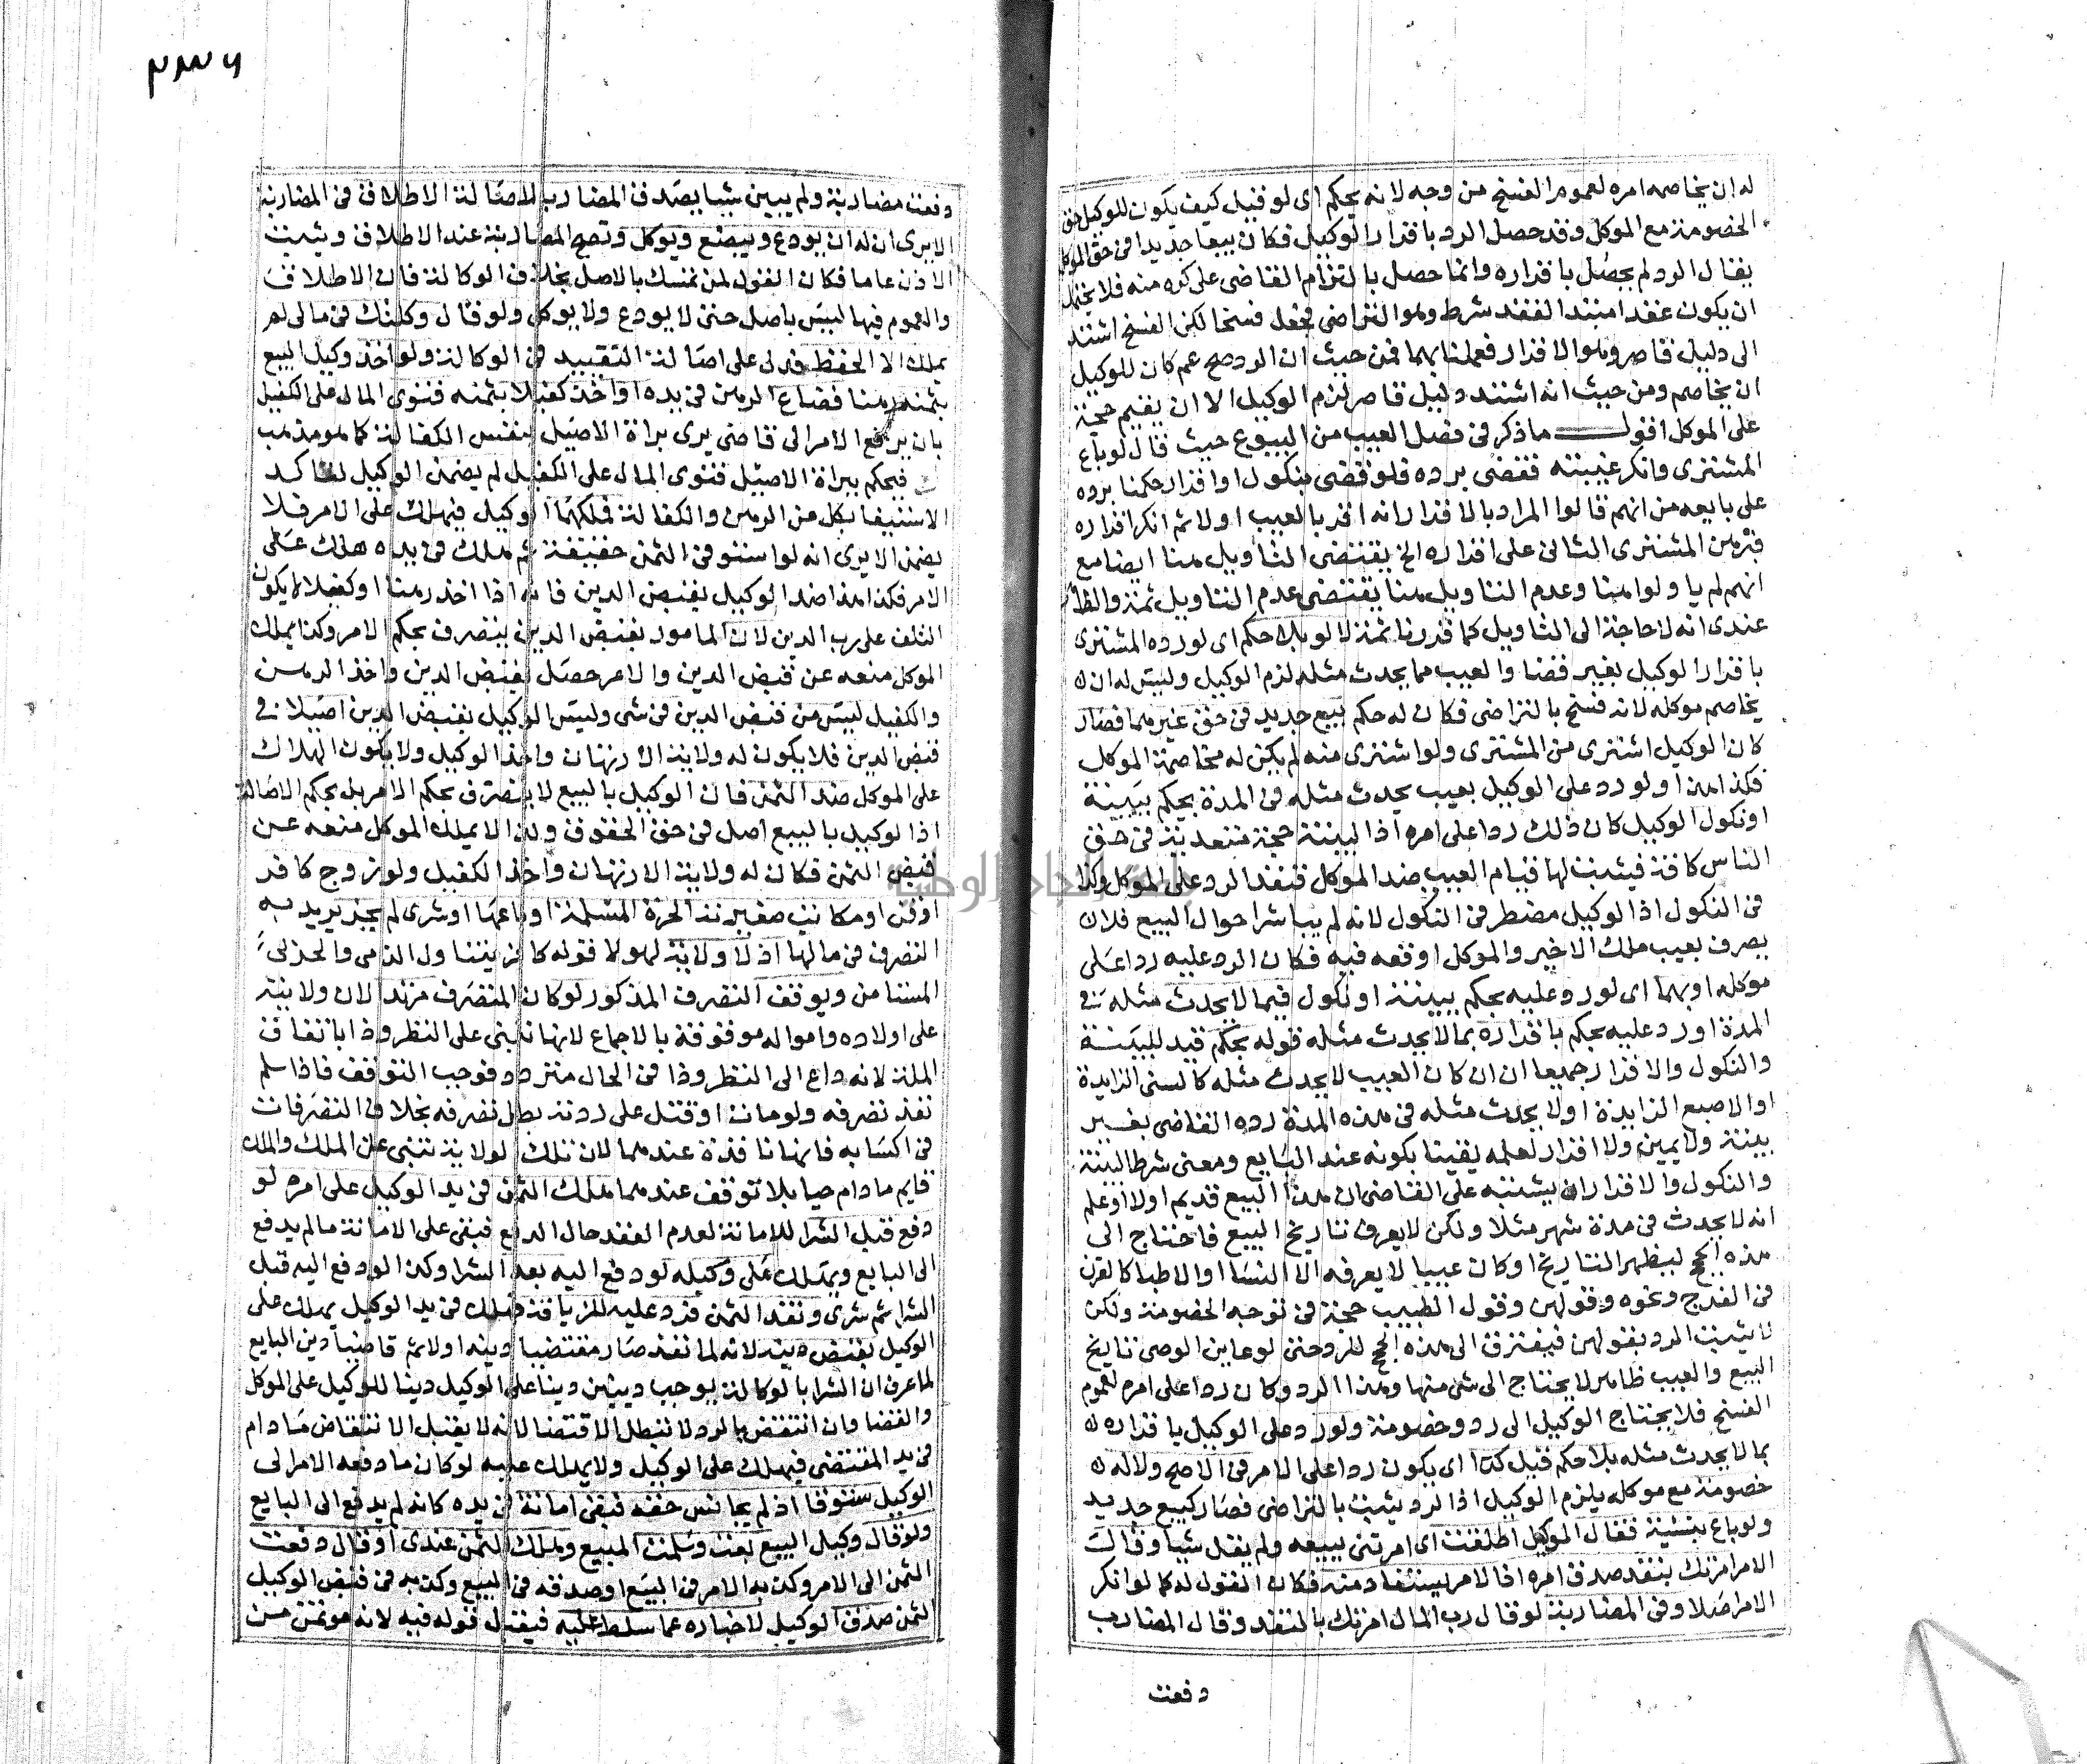 له ان يخاصمه امره لعموم الفسخ من وجه لانه يحكم اى لو قيل كيف يكون للوكيل حق
الخصومة مع الموكل وقد حصل الرد باقرار الوكيل فكان بيعا جديدا فى حق الموكل
يقال الرد لم يحصل باقراره وانما حصل بالتزام القاضى على كره منه فلا يحتمل
ان يكون عقدا مبتدا لفقد شرط وهو التراضى فجعل فسخا لكن الفسخ استند
الى دليل قاصر وهو الاقرار فعملنا بهما فمن حيث ان الرد صح عم كان للوكيل
ان يخاصم ومن حيث انه استند دليل قاصر لزم الوكيل الا ان يقيم حجة
على الموكل اقول ما ذكر فى فصل العيب من البيوع حيث قال لو باع
المشترى وانكر عيبته فقضى برده فلو قضى بنكول او اقرار حكمنا برده
على بايعه من انهم قالوا المراد بالاقرار انه اقر بالعيب اولا ثم انكر اقراره
فبرهن المشترى الثانى على اقراره الخ يقتضى التاويل هنا ايضا مع
انهم لم ياولوا هنا وعدم التاويل هنا يقتضى عدم التاويل ثمة والظاهر
عندى انه لا حاجة الى التاويل كما قررنا ثمة لا لو بلا حكم اى لو رده المشترى
باقرار الوكيل بغير قضا والعيب مما يحدث مثله لزم الوكيل وليس له ان
يخاصم موكله لانه فسخ بالتراضى فكان له حكم بيع جديد فى حق غيرهما فصار
كان الوكيل اشترى من المشترى ولو اشترى منه لم يكن له مخاصمة الموكل
فكذا هذا ولو رد على الوكيل بعيب يحدث مثله فى المدة بحكم ببينة
او نكول الوكيل كان ذلك ردا على امره اذ البينة حجة متعدية فى حق
الناس كافة فيثبت لها قيام العيب ضد الموكل فنفذ الرد على الموكل وكذا
فى النكول اذ الوكيل مضطر فى النكول لانه لم يباشر احوال البيع فلان
يصرف بعيب ملك الاخير والموكل اوقعه فيه فكان الرد عليه ردا على
موكله او بهما اى لو رد عليه بحكم ببينة او نكول فيما لا يحدث مثله فى
المدة او رد عليه بحكم باقراره بما لا يحدث مثله قوله بحكم قيد للبينة
والنكول والاقرار جميعا ان ان كان العيب لا يحدث مثله كالسن الزايدة
او الاصبع الزايدة او لا يحدث مثله فى هذه المدة رده القاضى بغير
بينة ولا يمين ولا اقرار لعلمه يقينا بكونه عند البايع ومعنى شرط البينة
والنكول والاقرار ان يشتبه على القاضى ان هذا البيع قديم او لا او علم
انه لا يحدث فى مدة شهر مثلا ولكن لا يعرف تاريخ البيع فاحتاج الى
هذه الحجج ليظهر التاريخ او كان عيبا لا يعرفه الا النسا او الاطبا كالقرن
فى الفرج ونحوه وقولهن وقول الطبيب حجة فى توجه الخصومة ولكن
لا يثبت الرد بقولهن فيفتقر الى هذه الحجج للرد حتى لو عاين الوصى تاريخ
البيع والعيب ظاهر لا يحتاج الى شى منها وهذا الرد وكان ردا على امره لعموم
الفسخ فلا يحتاج الوكيل الى رد وخصومة ولو رد على الوكيل باقراره
بما لا يحدث مثله بلا حكم قيل كذا اى يكون ردا على الامر فى الاصح ولا له
خصومة مع موكله يلزم الوكيل اذ الرد يثبت بالتراضى فصار كبيع جديد
ولو باع بنسيئة فقال الموكل اطلقت اى امرتنى ببيعه ولم يقل شيا وقالت
الامر امرتك بنقد صدق امره اذ الامر يستفاد منه فكان القول له كما لو انكر
الامر اصلا وفى المضاربة لو قال رب المال امرتك بالنقد وقال المضارب
دفعت
دفعت مضاربة ولم يبين شيا يصدق المضارب لاصالة الاطلاق فى المضاربة
الا يرى ان له ان يودع ويبضع ويوكل وتصح المضاربة عند الاطلاق ويثبت
الاذن عاما فكان القول لمن تمسك بالاصل بخلاف الوكالة فان الاطلاق
والعموم فيها ليس باصل حتى لا يودع ولا يوكل ولو قال وكلتك فى مالى لم
يملك الا الحفظ فدل على اصالة التقييد فى الوكالة ولو اخذ وكيل البيع
بثمنه رهنا فضاع الرهن فى يده او اخذ كفيلا بثمنه فتوى المال على الكفيل
بان يرفع الامر الى قاضى يرى براة الاصيل بنفس الكفالة كما هو مذهب
فيحكم ببراة الاصيل فتوى المال على الكفيل لم يضمن الوكيل لتاكد
الاستيفا بكل من الرهن والكفالة فملكهما الوكيل فيهلك على الامر فلا
يضمن الا يرى انه لو استوفى الثمن حقيقة ثم هلك فى يده هلك على
الامر فكذا هذا ضد الوكيل بقبض الدين فانه اذا اخذ رهنا او كفيلا لا يكون
التلف على رب الدين لان المامور بقبض الدين يتصرف بحكم الامر وكذا يملك
الموكل منعه عن قبض الدين والامر حصل بقبض الدين واخذ الرهن
والكفيل ليس من قبض الدين فى شى وليس الوكيل بقبض الدين اصيلا فى
قبض الدين فلا يكون له ولاية الارتهان واخذ الوكيل ولا يكون الهلاك
على الموكل ضد الثمن فان الوكيل بالبيع لا يتصرف بحكم الامر بل بحكم الاصالة
اذ الوكيل بالبيع اصل فى حق الحقوق ولذا لا يملك الموكل منعه عن
قبض الثمن فكان له ولاية الارتهان واخذ الكفيل ولو زوج كافر
او قن او مكاتب صغيرته الحرة المسلمة او باع لها او شرى لم يجز يريد به
التصرف فى مالها اذ لا ولاية لهولا قوله كافر يتناول الذمى والحربى
المستامن ويوقف التصرف المذكور لو كان المتصرف مرتدا لان ولايته
على اولاده وامواله موقوفة بالاجماع لانها تبنى على النظر وذا باتفاق
الملة لانه داع الى النظر وذا فى الحال متردد فوجب التوقف فاذا سلم
نفذ تصرفه ولو مات او قتل على ردته بطل تصرفه بخلاف التصرفات
فى اكسابه فانها نافذة عندهما لان تلك الولاية تبنى على الملك والملك
قايم ما دام حيا بلا توقف عندهما هلك الثمن فى يد الوكيل على امره لو
دفع قبل الشرا للامانة لعدم العقد حال الدفع فبقى على الامانة ما لم يدفع
الى البايع ويهلك على وكيله لو دفع اليه بعد الشرا وكذا لو دفع اليه قبل
الشرا ثم شرى ونقد الثمن فرد عليه للزيافة فهلك فى يد الوكيل يهلك على
الوكيل بقبض دينه لانه لما نقد صار مقتضيا دينه اولا ثم قاضيا دين البايع
لما عرف ان الشرا بالوكالة يوجب دينين دينا على الوكيل دينا للوكيل على الموكل
والقضا وان انتقض بالرد لا تبطل الاقتضا لانه لا يقبل الانتقاض ما دام
فى يد المقتضى فيهلك على الوكيل ولا يهلك عليه لو كان ما دفعه الامر الى
الوكيل ستوقا اذ لم يجانس حقه فبقى امانة فى يده كانه لم يدفع الى البايع
ولو قال وكيل البيع بعت وسلمت المبيع وهلك الثمن عندى او قال دفعت
الثمن الى الامر وكذبه الامر فى البيع او صدقه فى البيع وكذبه فى قبض الوكيل
الثمن صدق الوكيل لاخباره عما سلط عليه فيقبل قوله فيه لانه موتمن من
جامعة النجاح الوطنية